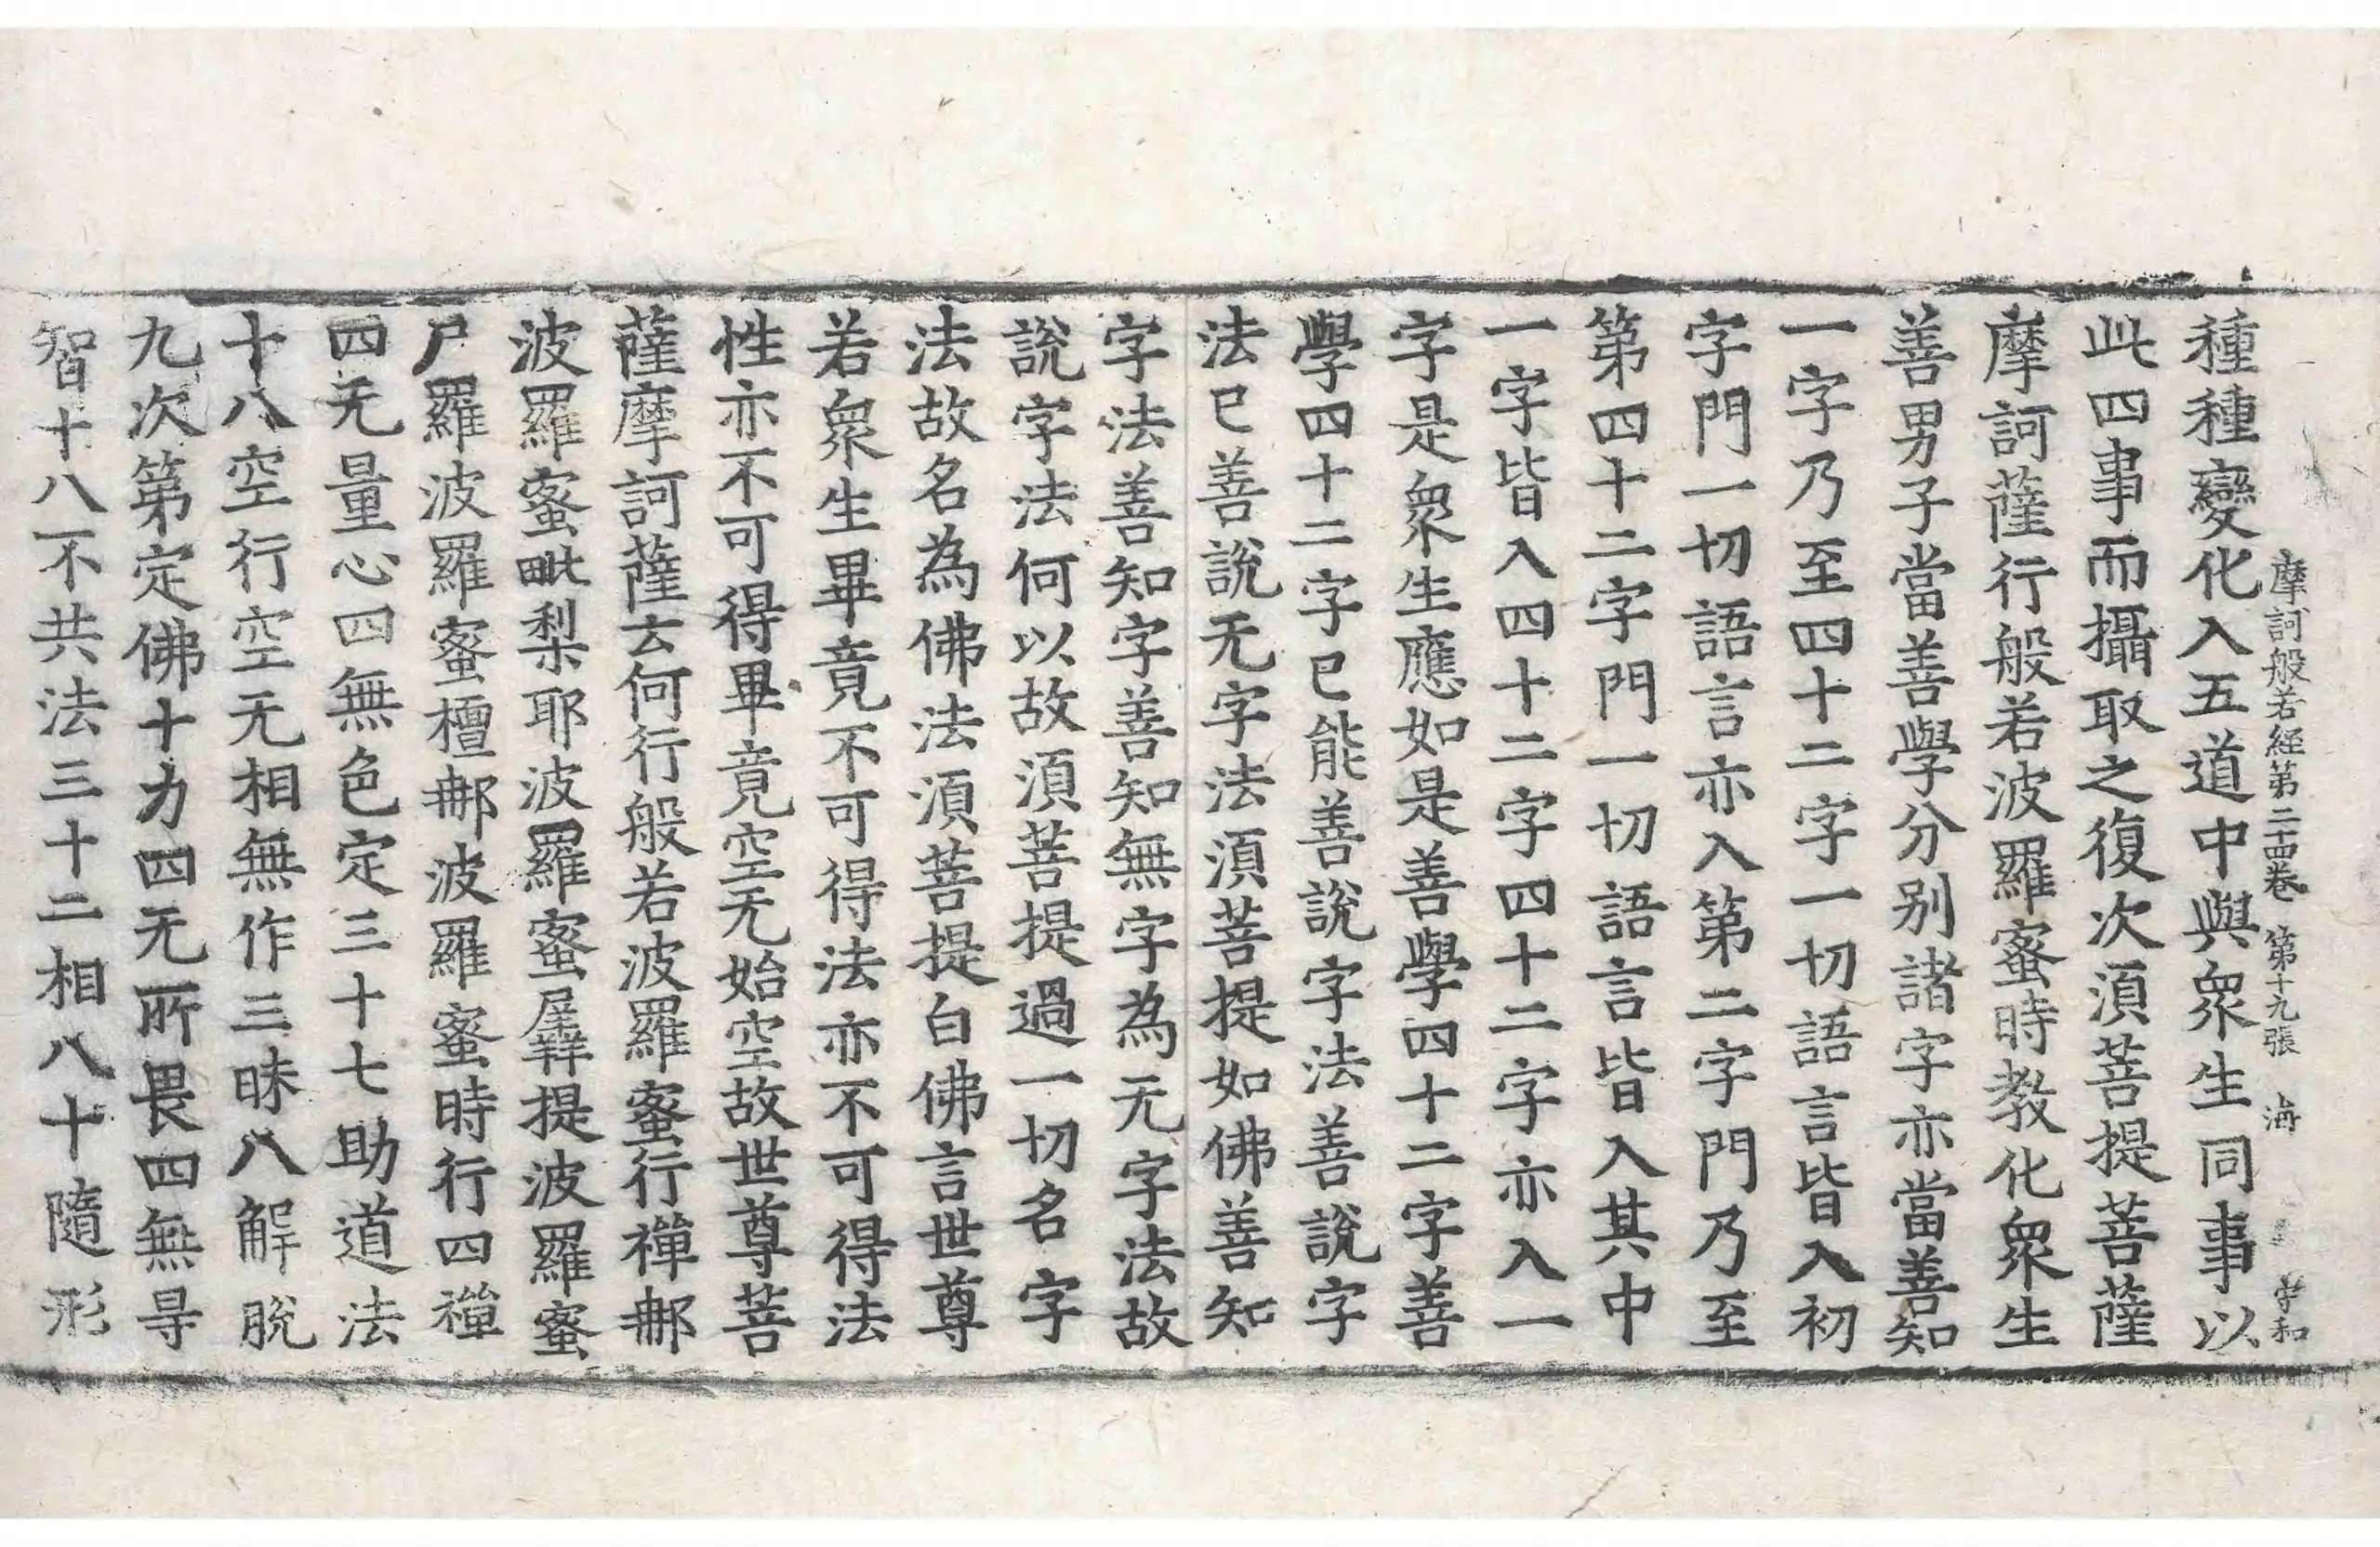 摩訶般若經第二十四卷 第十九張 海
種種變化入五道中與衆生同事以
此四事而攝取之復次湏菩提菩薩
摩訶薩行般若波羅蜜時教化衆生
善男子當善學分别諸字亦當善知
一字乃至四十二字一切語言皆入初
字門一切語言亦入第二字門乃至
第四十二字門一切語言皆入其中
一字皆入四十二字四十二字亦入一
字是衆生應如是善學四十二字善
學四十二字已能善說字法善說字
法已善說无字法湏菩提如佛善知
字法善知字善知無字為无字法故
說字法何以故湏菩提過一切名字
法故名為佛法湏菩提白佛言世尊
若衆生畢竟不可得法亦不可得法
性亦不可得畢竟空无始空故世尊菩
薩摩訶薩云何行般若波羅蜜行禪𨙻
波羅蜜毗梨耶波羅蜜羼提波羅蜜
尸羅波羅蜜檀𨙻波羅蜜時行四禪
四无量心四無色定三十七助道法
十八空行空无相無作三昧八解脫
九次第定佛十力四无所畏四無㝵
智十八不共法三十二相八十隨形